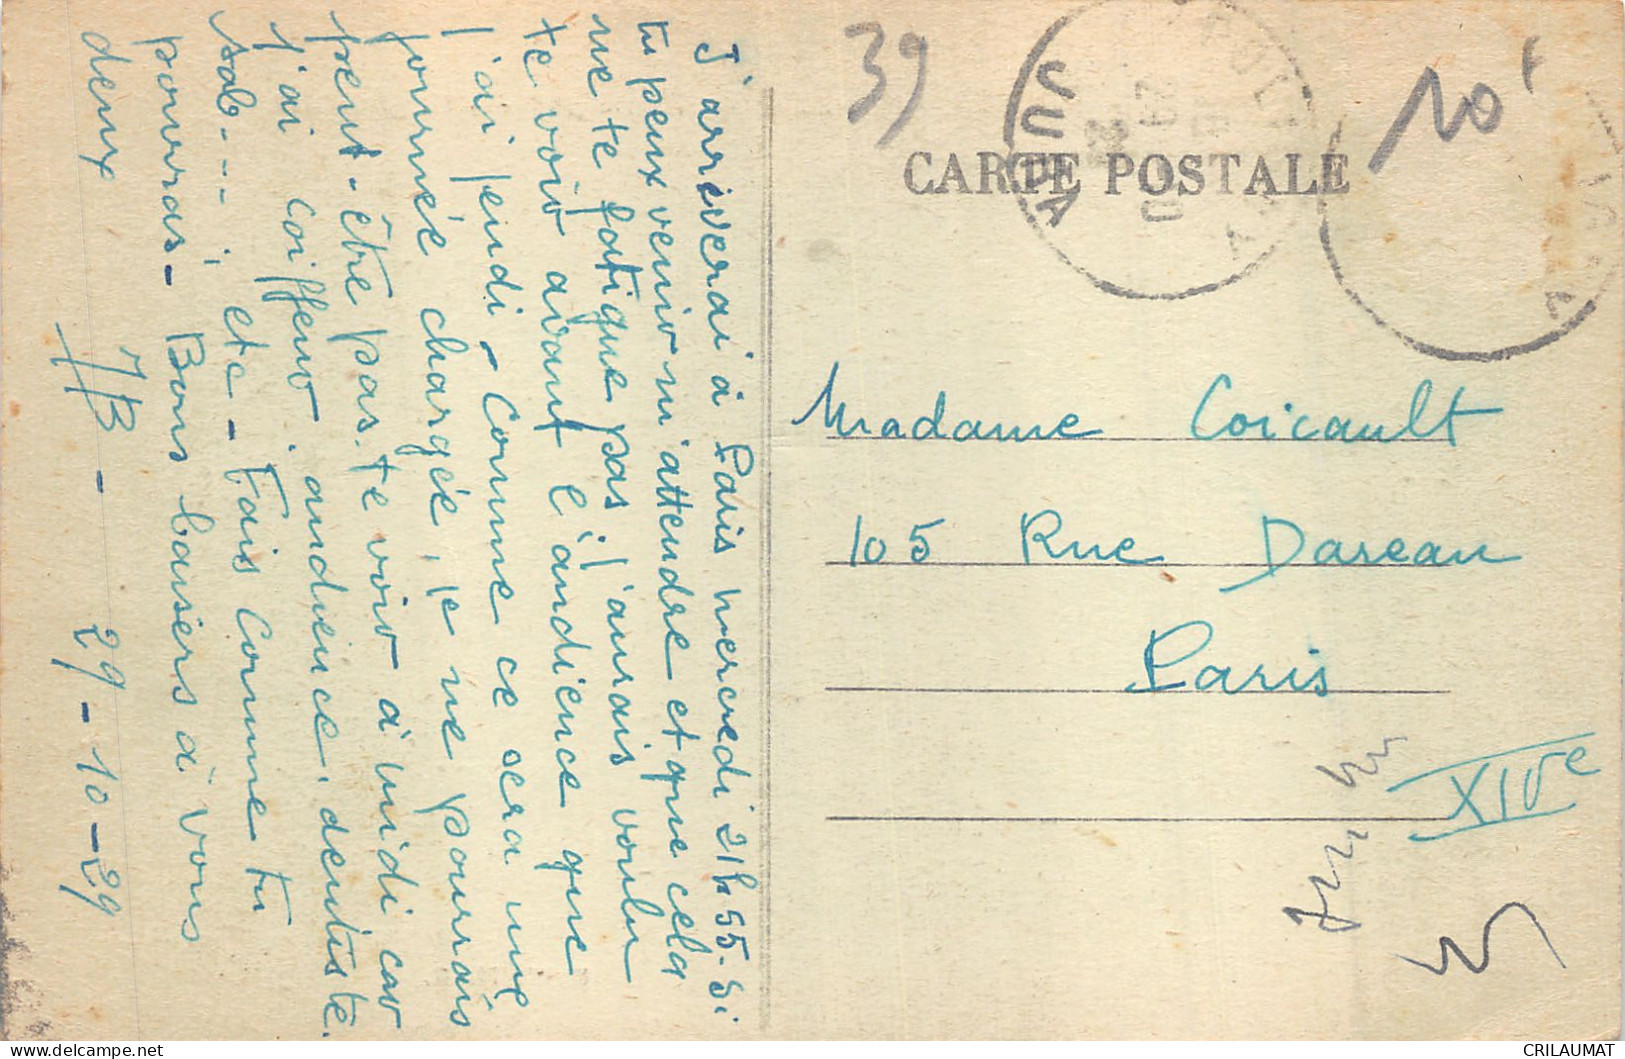 J'arriverai à Paris mercredi 21h55. Si
tu peux venir m'attendre et que cela
ne te fatigue pas. J'aurais voulu
te voir avant l'audience que
j'ai jeudi. Comme ce sera une
journée chargée, je ne pourrais
peut-être pas te voir à midi car
j'ai coiffeur, audience, dentiste.
etc - Fais comme tu
pourras - Bons baisers à vous
deux
JB - 29-10-29
39
10F
CARTE POSTALE
JURA
Madame Coicault
105 Rue Dareau
Paris
XIVe
CRILAUMAT